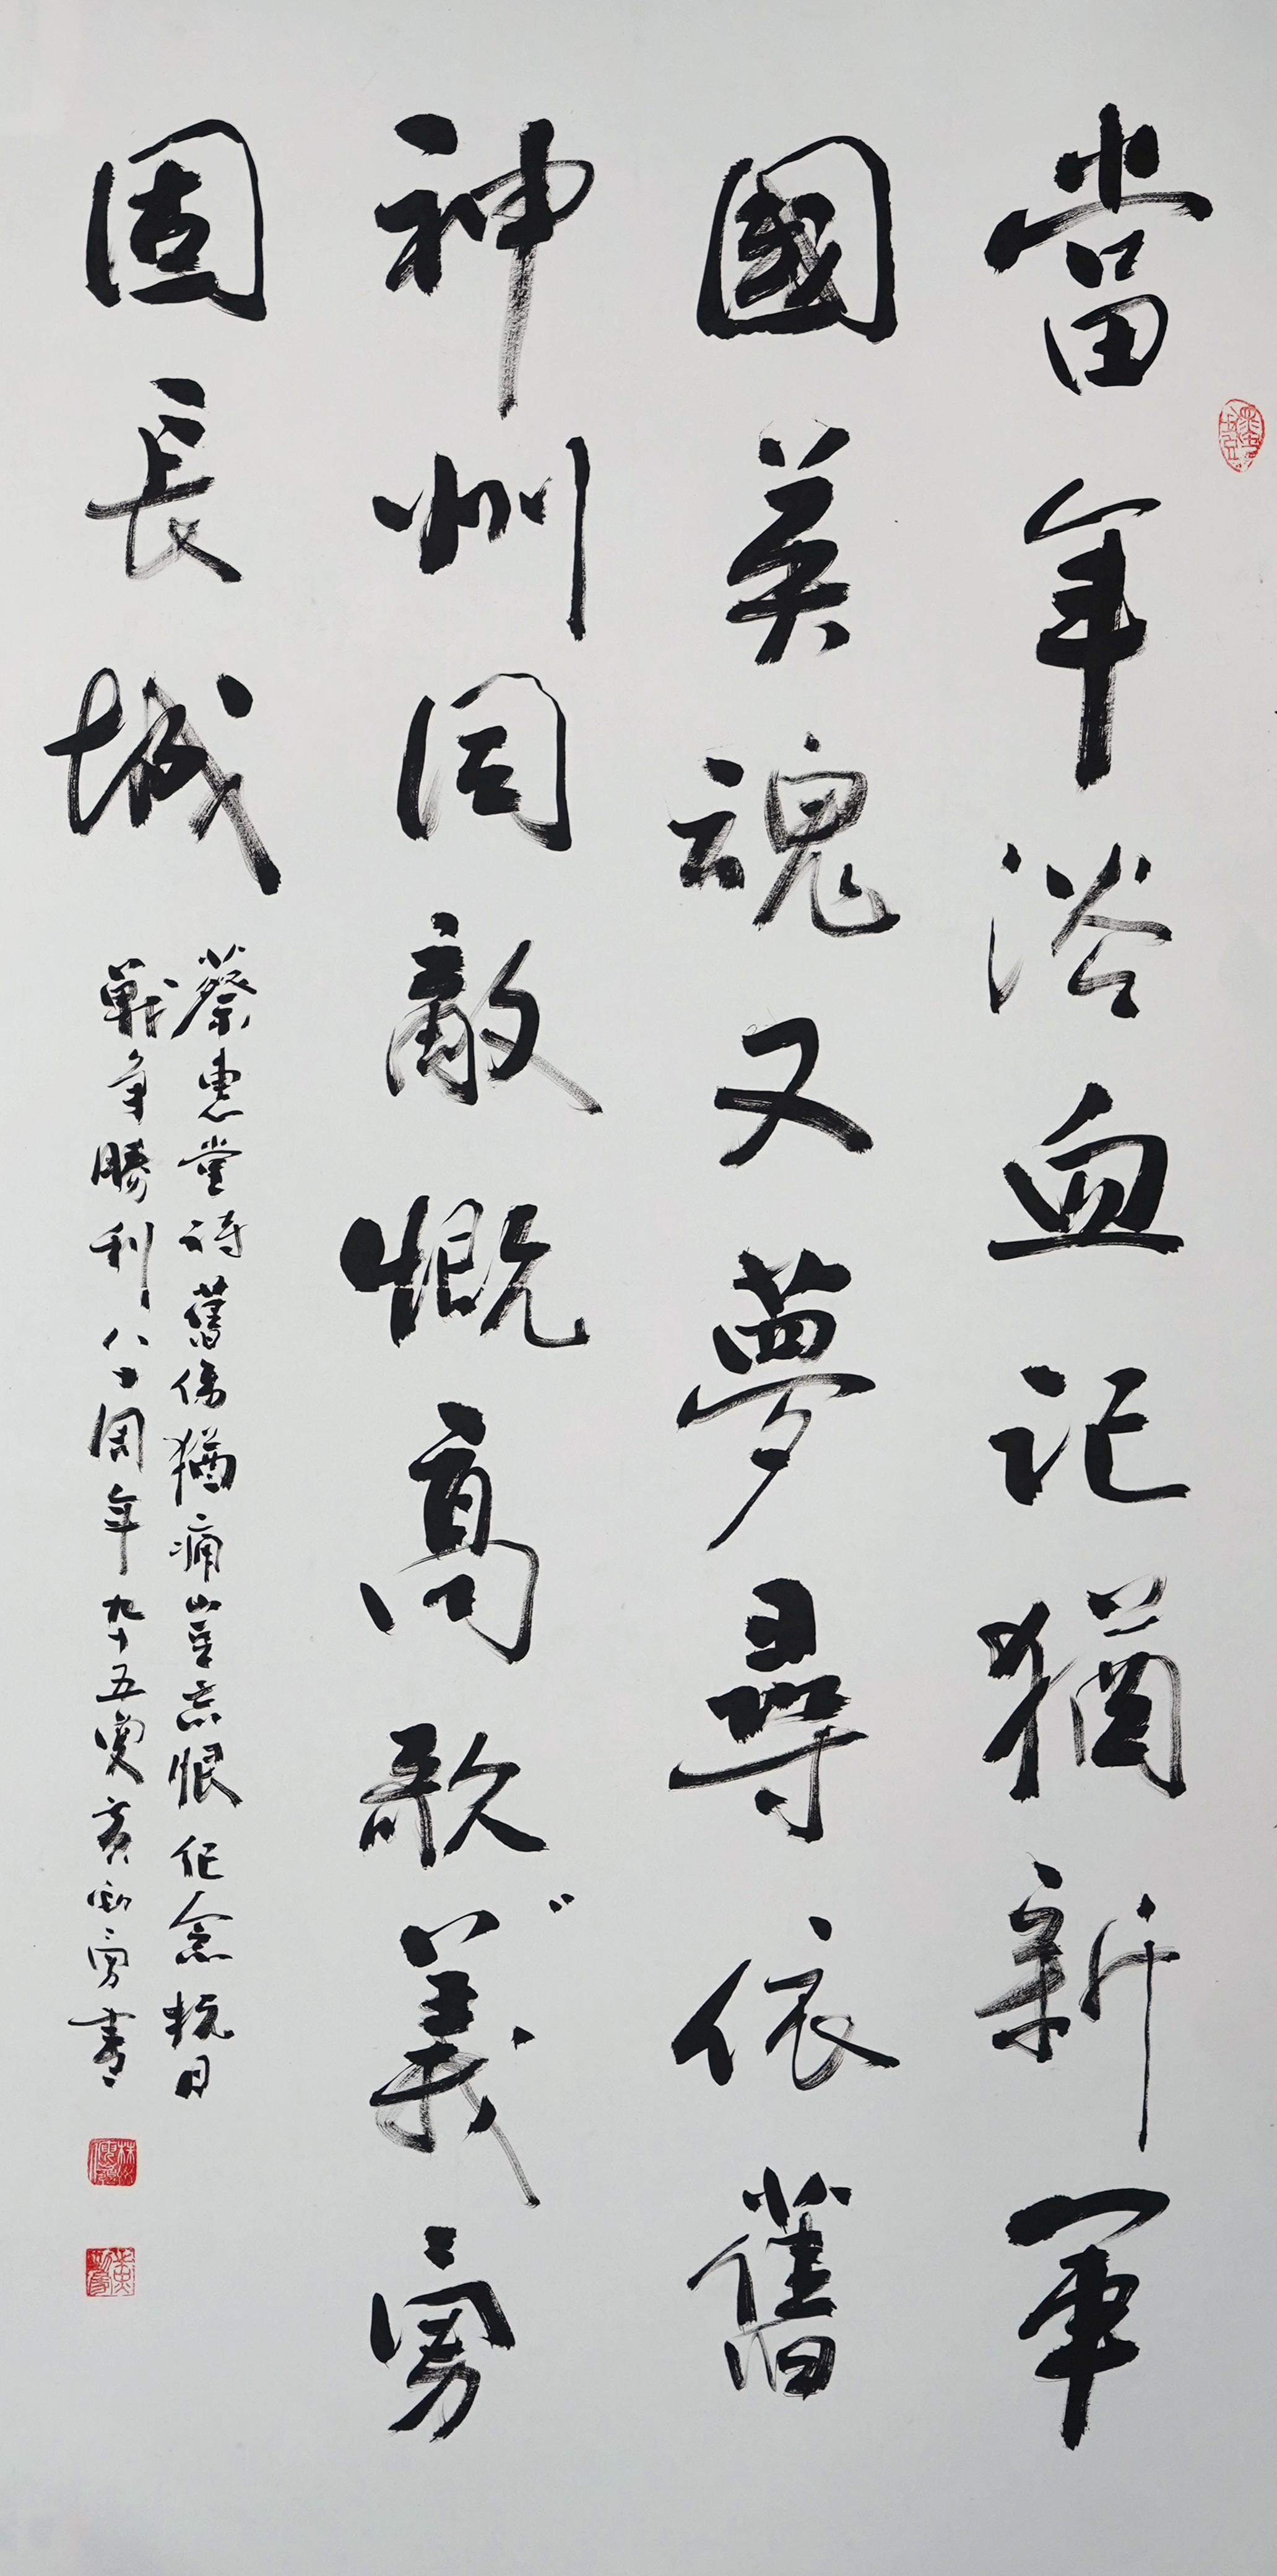 當年浴血記猶新軍
國英魂又夢尋依舊
神州同敵慨高歌義勇
固長城
蔡惠堂詩舊傷猶痛豈忘恨紀念抗日
戰爭勝利八十周年九十五叟黃勇書